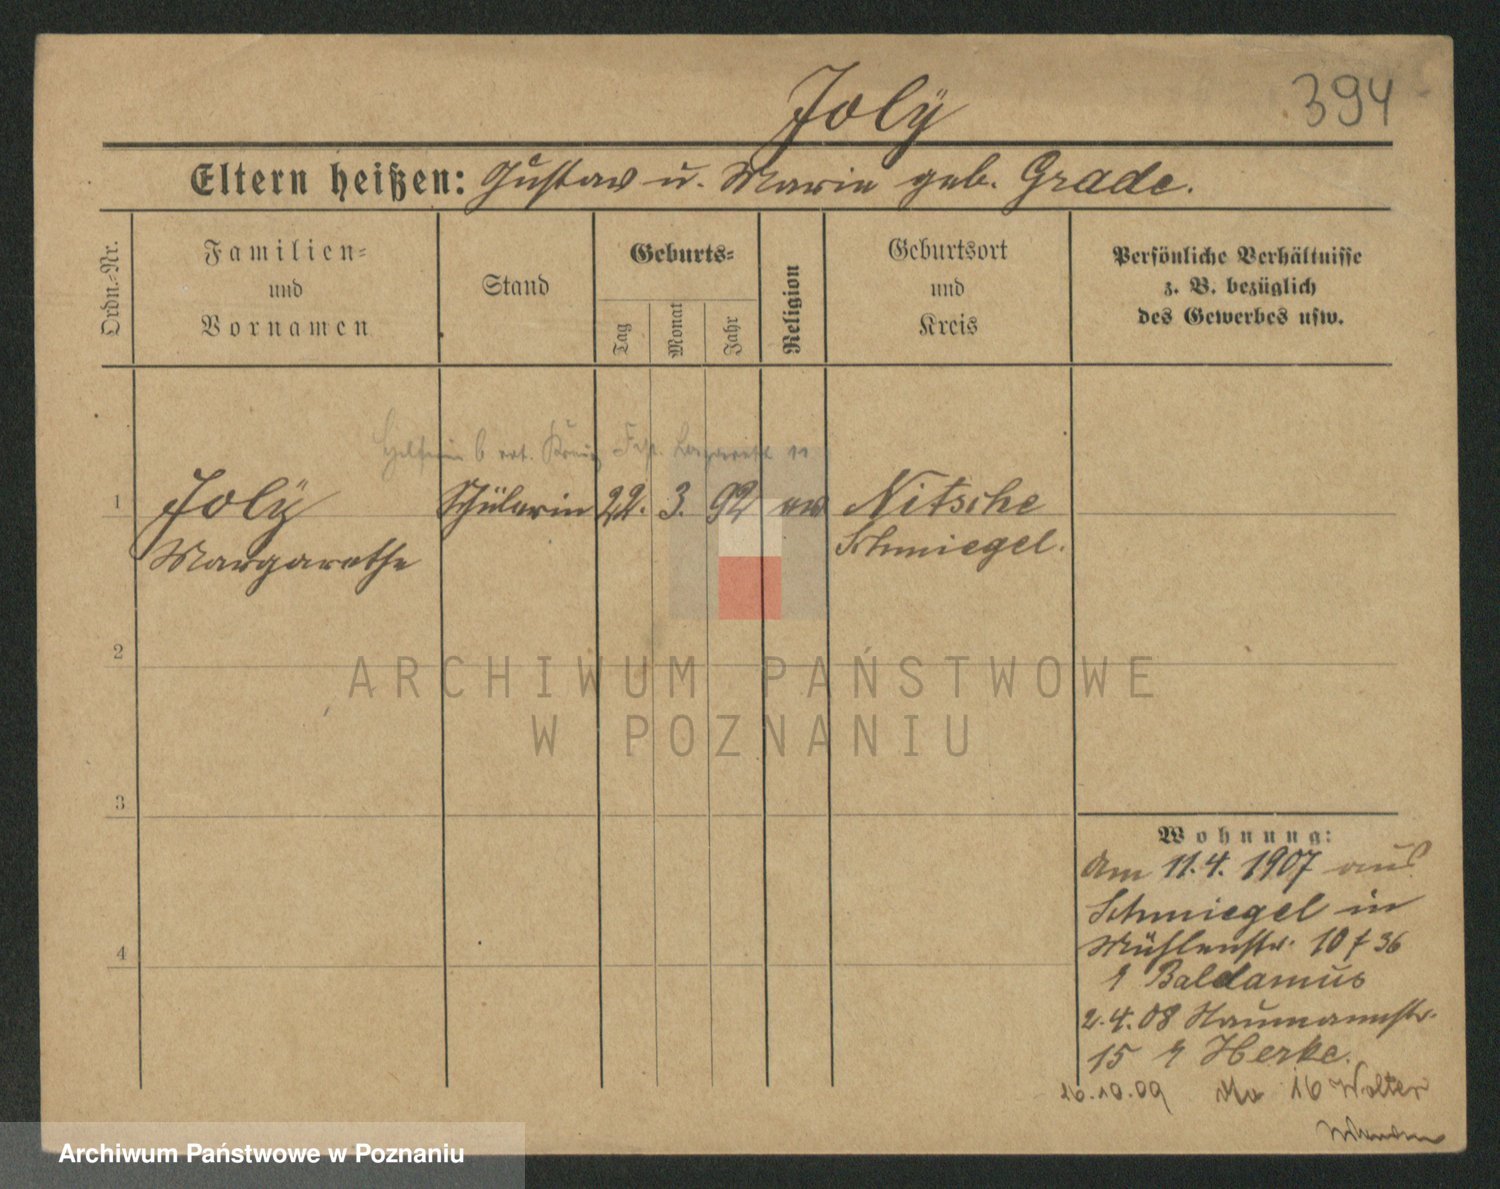 Joly
394
Eltern heißen: Gustav u. Marie geb. Grade.
Ordn.-Nr.
Familien-
und
Vornamen
Stand
Geburts-
Tag
Monat
Jahr
Religion
Geburtsort
und
Kreis
Persönliche Verhältnisse
z. B. bezüglich
des Gewerbes usw.
1
Joly
Margarethe
Schülerin
22. 3. 92
ev
Nitsche
Schmiegel.
2
3
4
Wohnung:
Am 11.4.1907 aus
Schmiegel in
Mühlenstr. 10 f 36
Baldamus
2.4.08 Naumannstr.
15 Herke.
26.10.09 16 Wolter
ARCHIWUM PAŃSTWOWE
W POZNANIU
Archiwum Państwowe w Poznaniu